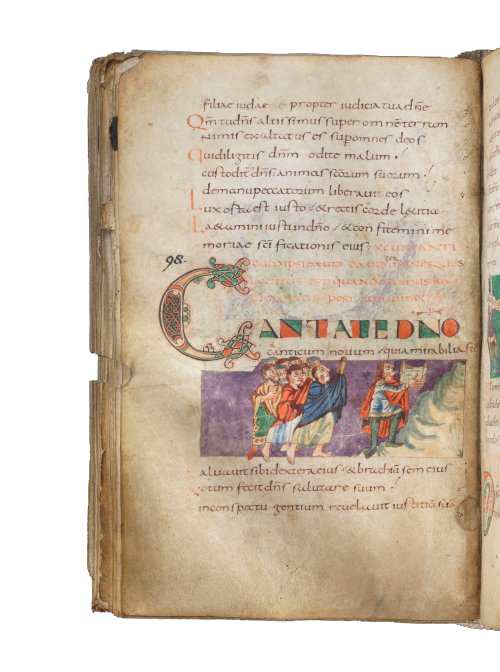 filiae iudae propter iudicia tua dñe
Qm̃ tu dñs altissimus super omnem terram
Nimis exaltatus es sup omnes deos
Qui diligitis dnm̃ odite malum.
custodit dñs animas scõrum suorum.
de manu peccatorum liberavit eos
Lux orta est iusto & rectis corde laetitia
Laetamini iusti in dño & confitemini me
moriae scĩficationis eius:
98.
CANTATE DNO
canticum novum quia mirabilia
Saluavit sibi dextera eius & brachiũ scm̃ eius
Notum fecit dñs salutare suum.
in conspectu gentium revelavit iustitiã suã